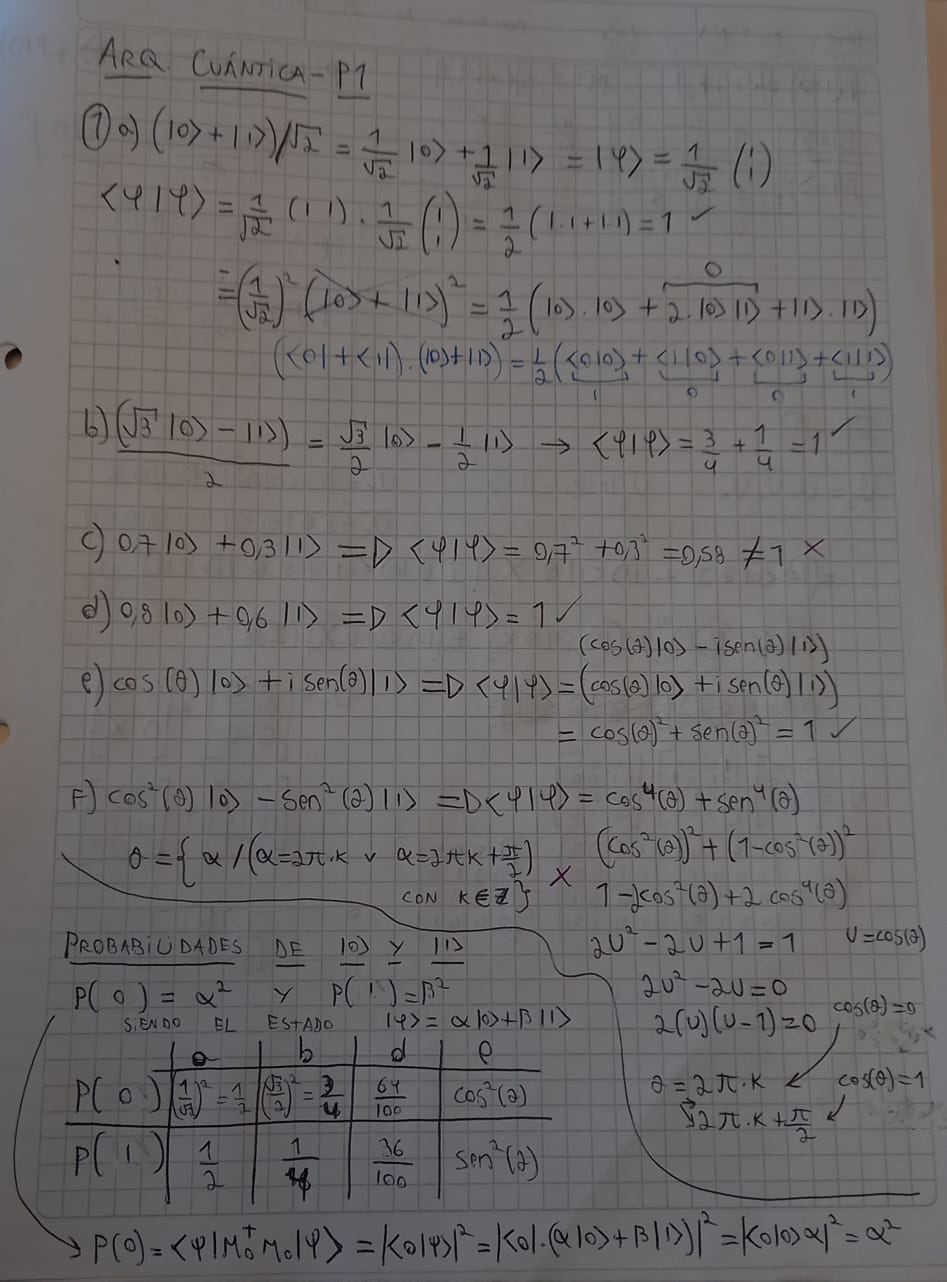 ARQ. CUÁNTICA - P1
① a) (|0> + |1>)/√2 = 1/√2 |0> + 1/√2 |1> = |φ> = 1/√2 (1 1)
<φ|φ> = 1/√2 (1 1) · 1/√2 (1 1) = 1/2 (1.1 + 1.1) = 1 ✓
= (1/√2)² (|0> + |1>)² = 1/2 (|0>.|0> + 2.|0>|1> + |1>.|1>)
0
(<0| + <1|).(|0> + |1>) = 1/2 (<0|0> + <1|0> + <0|1> + <1|1>)
1 0 0 1
b) (√3 |0> - |1>)/2 = √3/2 |0> - 1/2 |1> → <φ|φ> = 3/4 + 1/4 = 1 ✓
c) 0,7|0> + 0,3|1> => <φ|φ> = 0,7² + 0,3² = 0,58 ≠ 1 ×
d) 0,8|0> + 0,6|1> => <φ|φ> = 1 ✓
(cos(θ)|0> - i sen(θ)|1>)
e) cos(θ)|0> + i sen(θ)|1> => <φ|φ> = (cos(θ)|0> + i sen(θ)|1>)
= cos(θ)² + sen(θ)² = 1 ✓
F) cos²(θ)|0> - sen²(θ)|1> => <φ|φ> = cos⁴(θ) + sen⁴(θ)
θ = {α / (α = 2π.K v α = 2πK + π/2)
CON K ∈ Z} ×
(cos²(θ))² + (1 - cos²(θ))²
1 - 2cos²(θ) + 2 cos⁴(θ)
2U² - 2U + 1 = 1 U = cos(θ)
2U² - 2U = 0
2(U)(U - 1) = 0 cos(θ) = 0
θ = 2π.K cos(θ) = 1
2π.K + π/2
PROBABILIDADES DE |0> Y |1>
P(0) = α² Y P(1) = β²
SIENDO EL ESTADO |φ> = α|0> + β|1>
a b d e
P(0) (1/√2)² = 1/2 (√3/2)² = 3/4 64/100 cos²(θ)
P(1) 1/2 1/4 36/100 sen²(θ)
P(0) = <φ|M₀†M₀|φ> = |<0|φ>|² = |<0|.(α|0> + β|1>)|² = |<0|0>α|² = α²